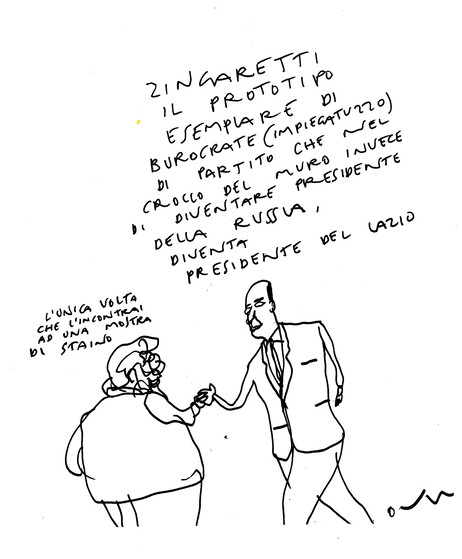 ZINGARETTI
IL PROTOTIPO
ESEMPLARE DI
BUROCRATE (IMPIEGATUZZO)
DI PARTITO CHE NEL
CROLLO DEL MURO INVECE
DI DIVENTARE PRESIDENTE
DELLA RUSSIA,
DIVENTA
PRESIDENTE DEL LAZIO
L'UNICA VOLTA
CHE L'INCONTRAI
AD UNA MOSTRA
DI STAINO